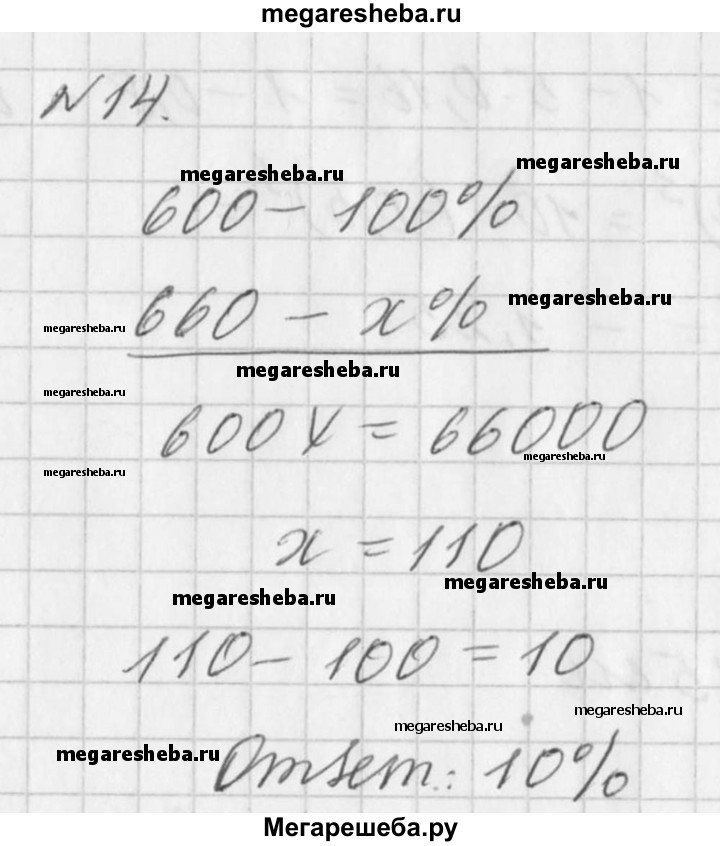 megaresheba.ru
№14.
megaresheba.ru
megaresheba.ru
600 — 100%
megaresheba.ru
660 — x%
megaresheba.ru
megaresheba.ru
megaresheba.ru
600x = 66000
megaresheba.ru
megaresheba.ru
x = 110
megaresheba.ru
megaresheba.ru
110 - 100 = 10
megaresheba.ru
megaresheba.ru
megaresheba.ru
Ответ: 10%
Мегарешеба.ру